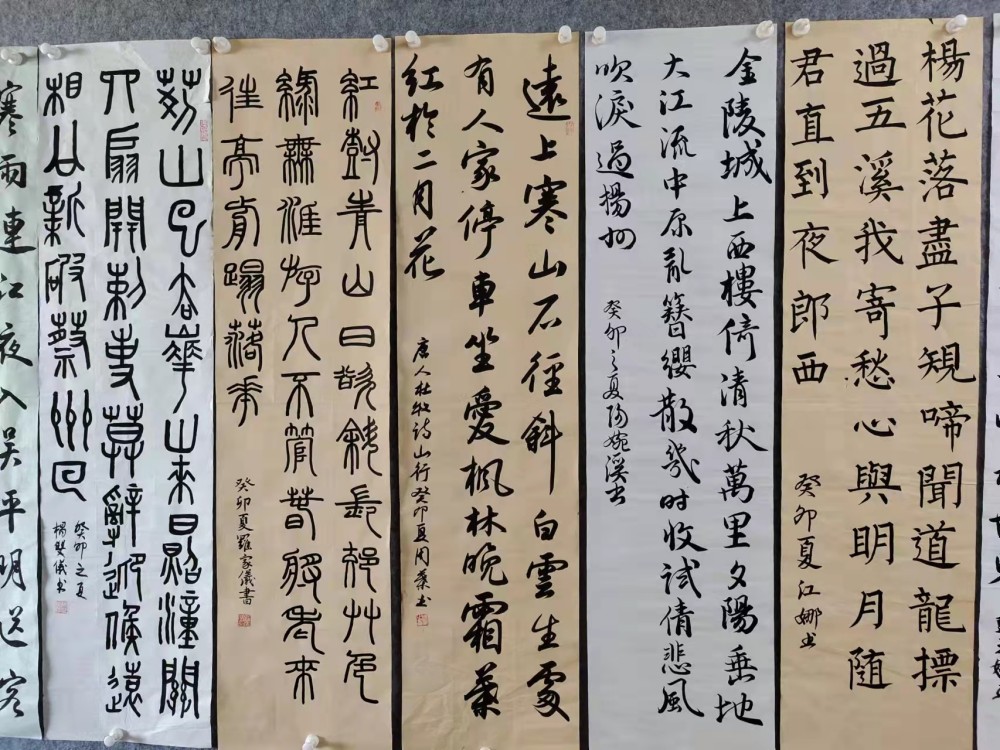 楊花落盡子規啼聞道龍摽
過五溪我寄愁心與明月随
君直到夜郎西
癸卯夏江娜书
金陵城上西樓倚清秋萬里夕陽垂地
大江流中原亂簪纓散幾时收試倩悲風
吹淚過揚州
癸卯之夏陶婉溪书
遠上寒山石徑斜白雲生處
有人家停車坐愛楓林晚霜葉
红於二月花
唐人杜牧詩山行癸卯夏周葉书
紅樹青山日欲斜長郊艸色
綠無涯游人不管春將老來
往亭前蹋落花
癸卯夏羅家儀書
荊山已去華山來日照潼關
四扇開刺史莫辭迎候遠
相公新破蔡州回
癸卯之夏
楊儀书
寒雨連江夜入吴平明送客